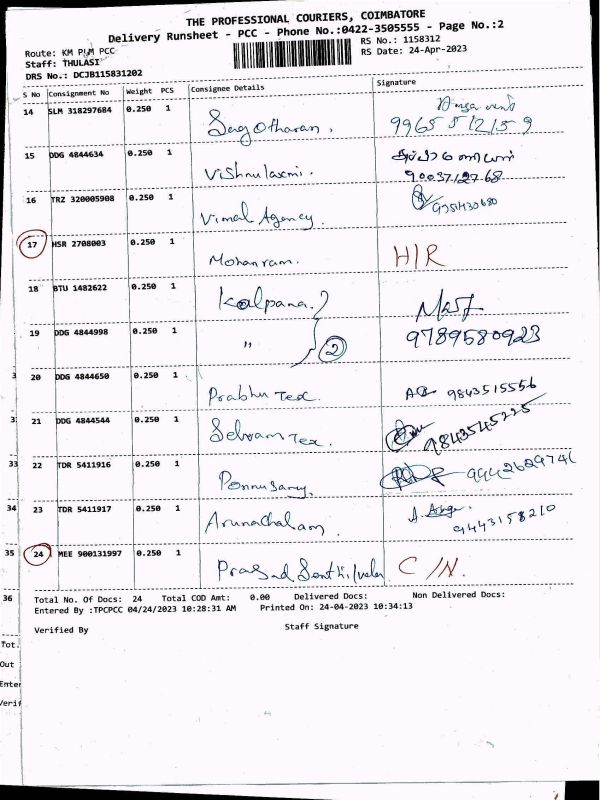 THE PROFESSIONAL COURIERS, COIMBATORE
Delivery Runsheet - PCC - Phone No.:0422-3505555 - Page No.:2
Route: KM PUM PCC
RS No.: 1158312
Staff: THULASI
RS Date: 24-Apr-2023
DRS No.: DCJB115831202
S No Consignment No Weight PCS Consignee Details Signature
14 SLM 318297684 0.250 1
9965512159
15 DDG 4844634 0.250 1 Vishnulaxmi.
9003712768
16 TRZ 320005908 0.250 1 Vimal Agency. 9751430680
17 HSR 2708003 0.250 1 Mohanram. H/R
18 BTU 1482622 0.250 1 Kalpana.
19 DDG 4844998 0.250 1 " 2 9789580923
3 20 DDG 4844650 0.250 1 Prabhu Tex. 9843515556
3 21 DDG 4844544 0.250 1 Selvam Tex. 9843545225
33 22 TDR 5411916 0.250 1 Ponnusamy. 944262974
34 23 TDR 5411917 0.250 1 Arunachalam. 9443158210
35 24 MEE 900131997 0.250 1 Prasad Senthilvelan C/N.
36 Total No. Of Docs: 24 Total COD Amt: 0.00 Delivered Docs: Non Delivered Docs:
Entered By :TPCPCC 04/24/2023 10:28:31 AM Printed On: 24-04-2023 10:34:13
Verified By Staff Signature
Tot.
Out
Enter
Verif